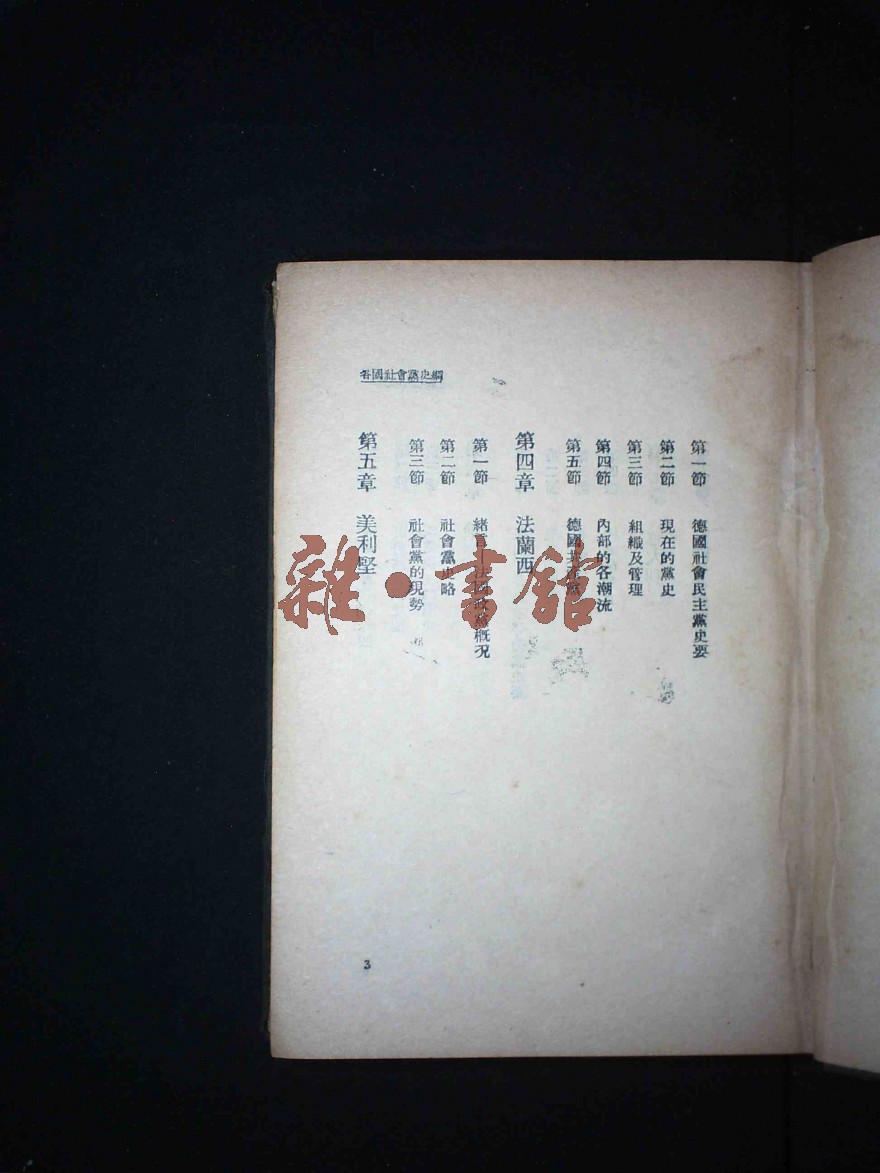 各國社會黨史綱
第一節 德國社會民主黨史要
第二節 現在的黨史
第三節 組織及管理
第四節 內部的各潮流
第五節 德國共產黨
第四章 法蘭西
第一節 緒言 法國政黨概況
第二節 社會黨史略
第三節 社會黨的現勢
第五章 美利堅
3
雜·書館